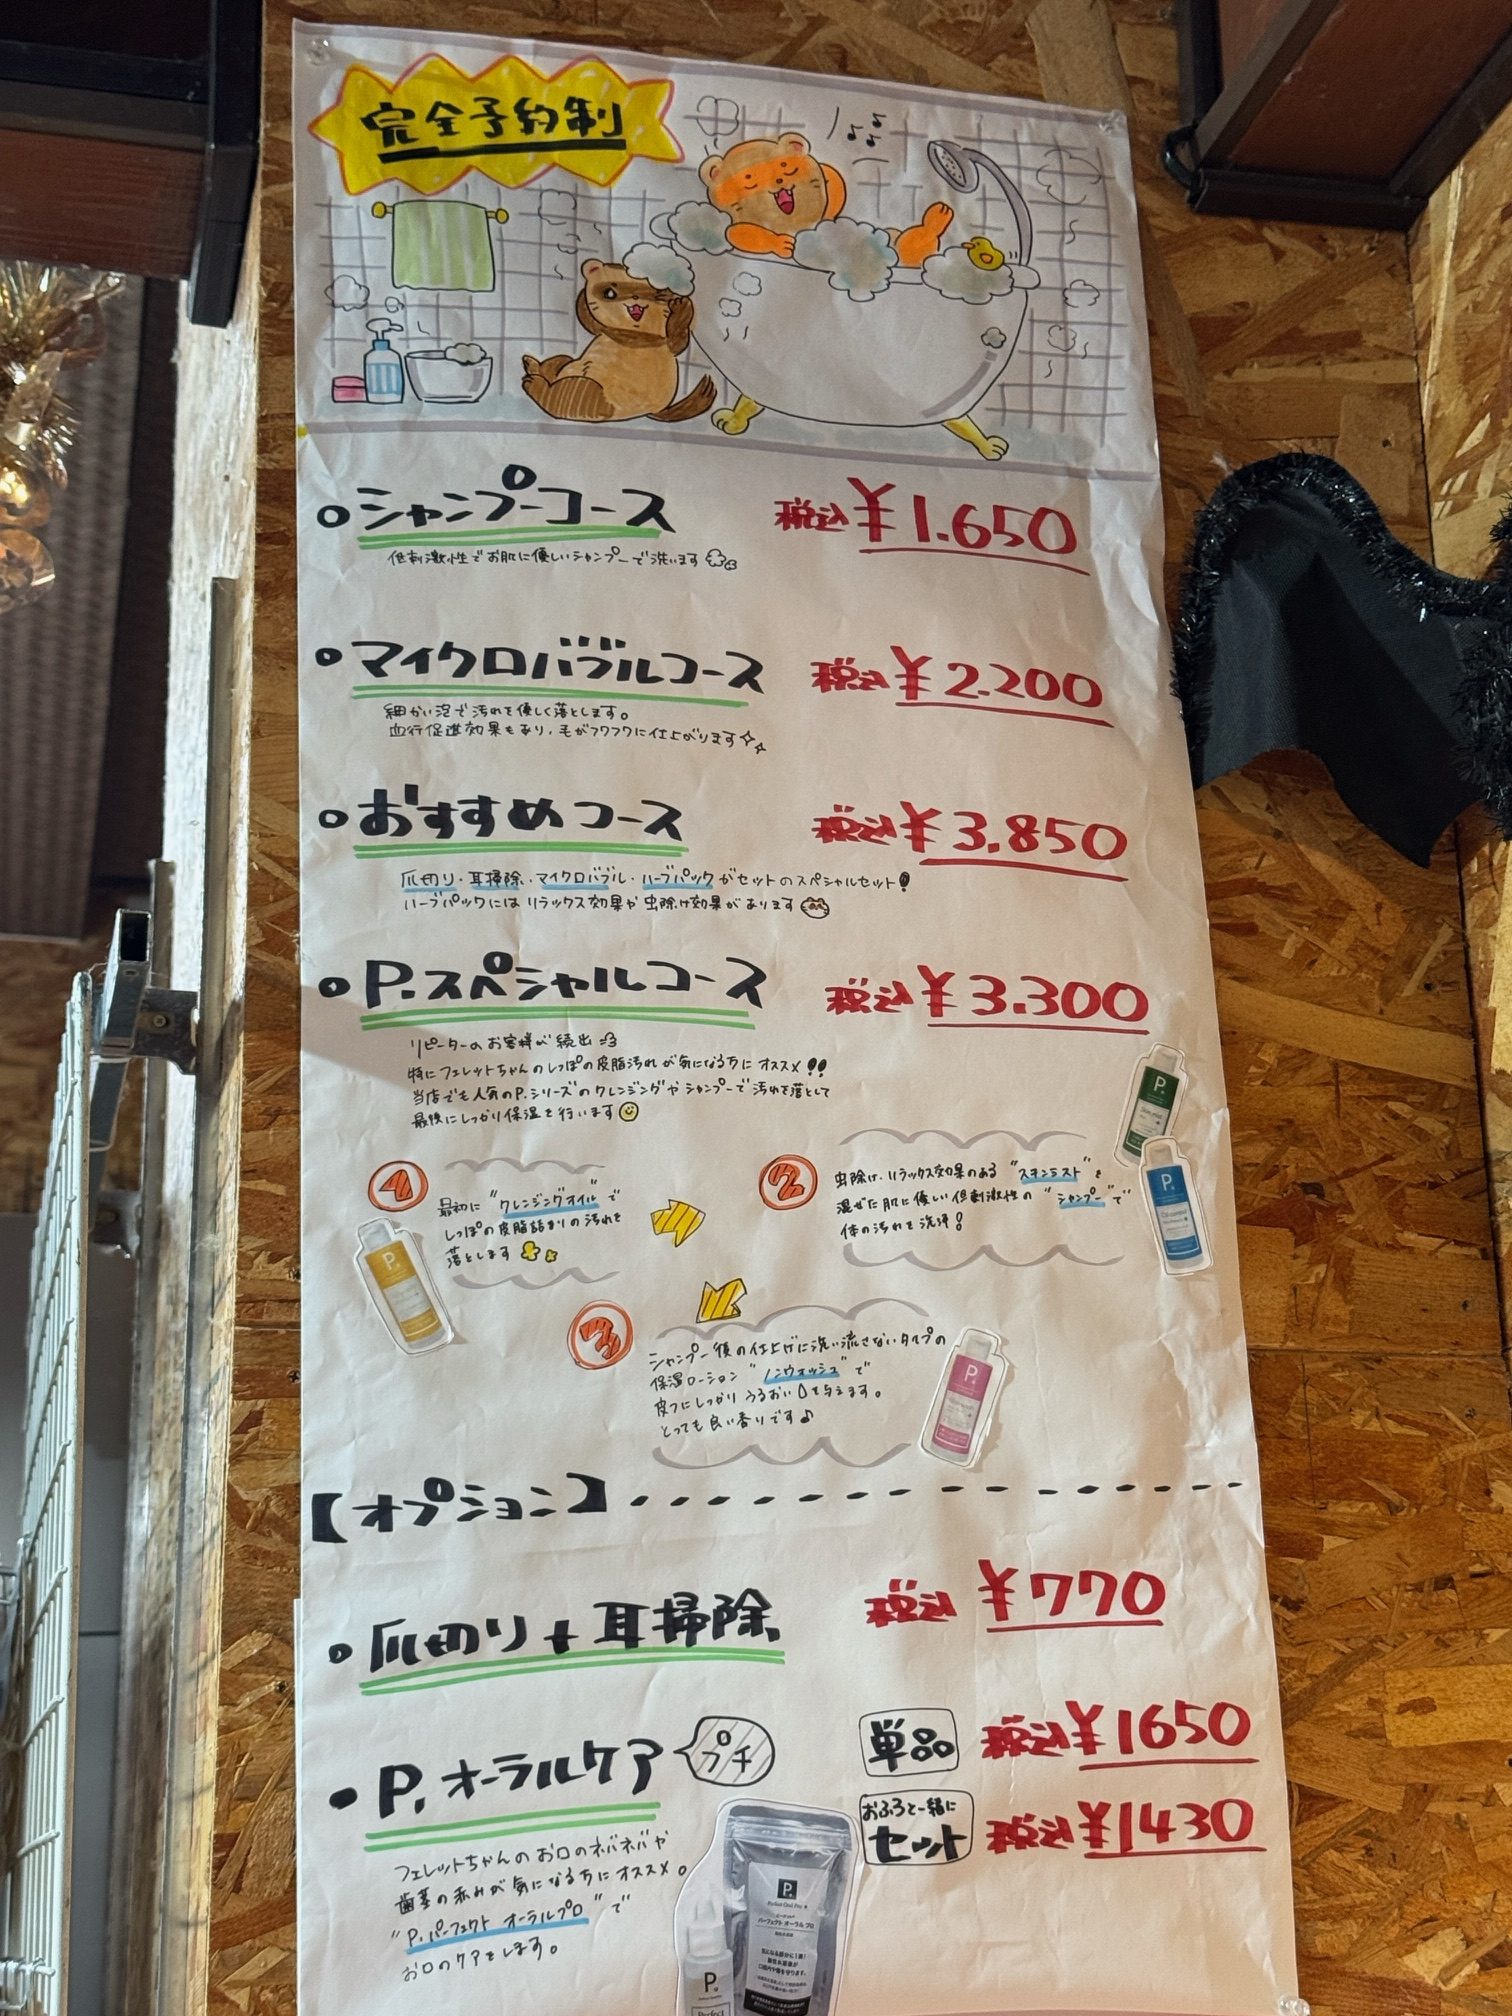 完全予約制
シャンプーコース 税込¥1.650
低刺激性でお肌に優しいシャンプーで洗います
マイクロバブルコース 税込¥2.200
細かい泡で汚れを優しく落とします。
血行促進効果もあり、毛がフワフワに仕上がります
おすすめコース 税込¥3.850
爪切り・耳掃除・マイクロバブル・ハーブパックがセットのスペシャルセット!
ハーブパックにはリラックス効果や虫除け効果があります
P.スペシャルコース 税込¥3.300
リピーターのお客様が続出
特にフェレットちゃんのしっぽの皮脂汚れが気になる方にオススメ!!
当店でも人気のP.シリーズのクレンジングやシャンプーで汚れを落として
最後にしっかり保湿を行います
1
最初に"クレンジングオイル"で
しっぽの皮脂詰まりの汚れを
落とします
P.
2
虫除け、リラックス効果のある"スキンミスト"を
混ぜた肌に優しい低刺激性の"シャンプー"で
体の汚れを洗浄!
P.
Skin mist
P.
3
シャンプー後の仕上げに洗い流さないタイプの
保湿ローション"ノンウォッシュ"で
皮フにしっかりうるおいを与えます。
とっても良い香りです♪
P.
【オプション】
爪切り+耳掃除 税込¥770
P.オーラルケア プチ
単品 税込¥1650
おふろと一緒に
セット 税込¥1430
フェレットちゃんのお口のネバネバや
歯茎の赤みが気になる方にオススメ。
"P.パーフェクトオーラルプロ"で
お口のケアをします。
P.
パーフェクト オーラル プロ
P.
Perfect